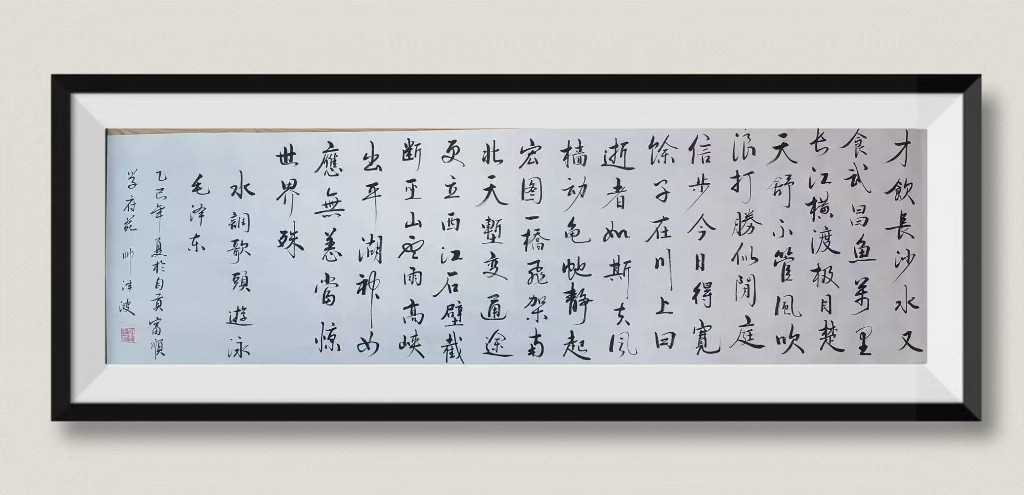 才飲長沙水又
食武昌鱼萬里
长江横渡极目楚
天舒不管風吹
浪打勝似閒庭
信步今日得寬
馀子在川上曰
逝者如斯夫风
樯动龟蛇靜起
宏图一橋飛架南
北天塹变通途
更立西江石壁截
断巫山雲雨高峡
出平湖神女
應無恙當惊
世界殊
水調歌頭 遊泳
毛泽东
乙巳年夏於自贡富順
学府苑 帅